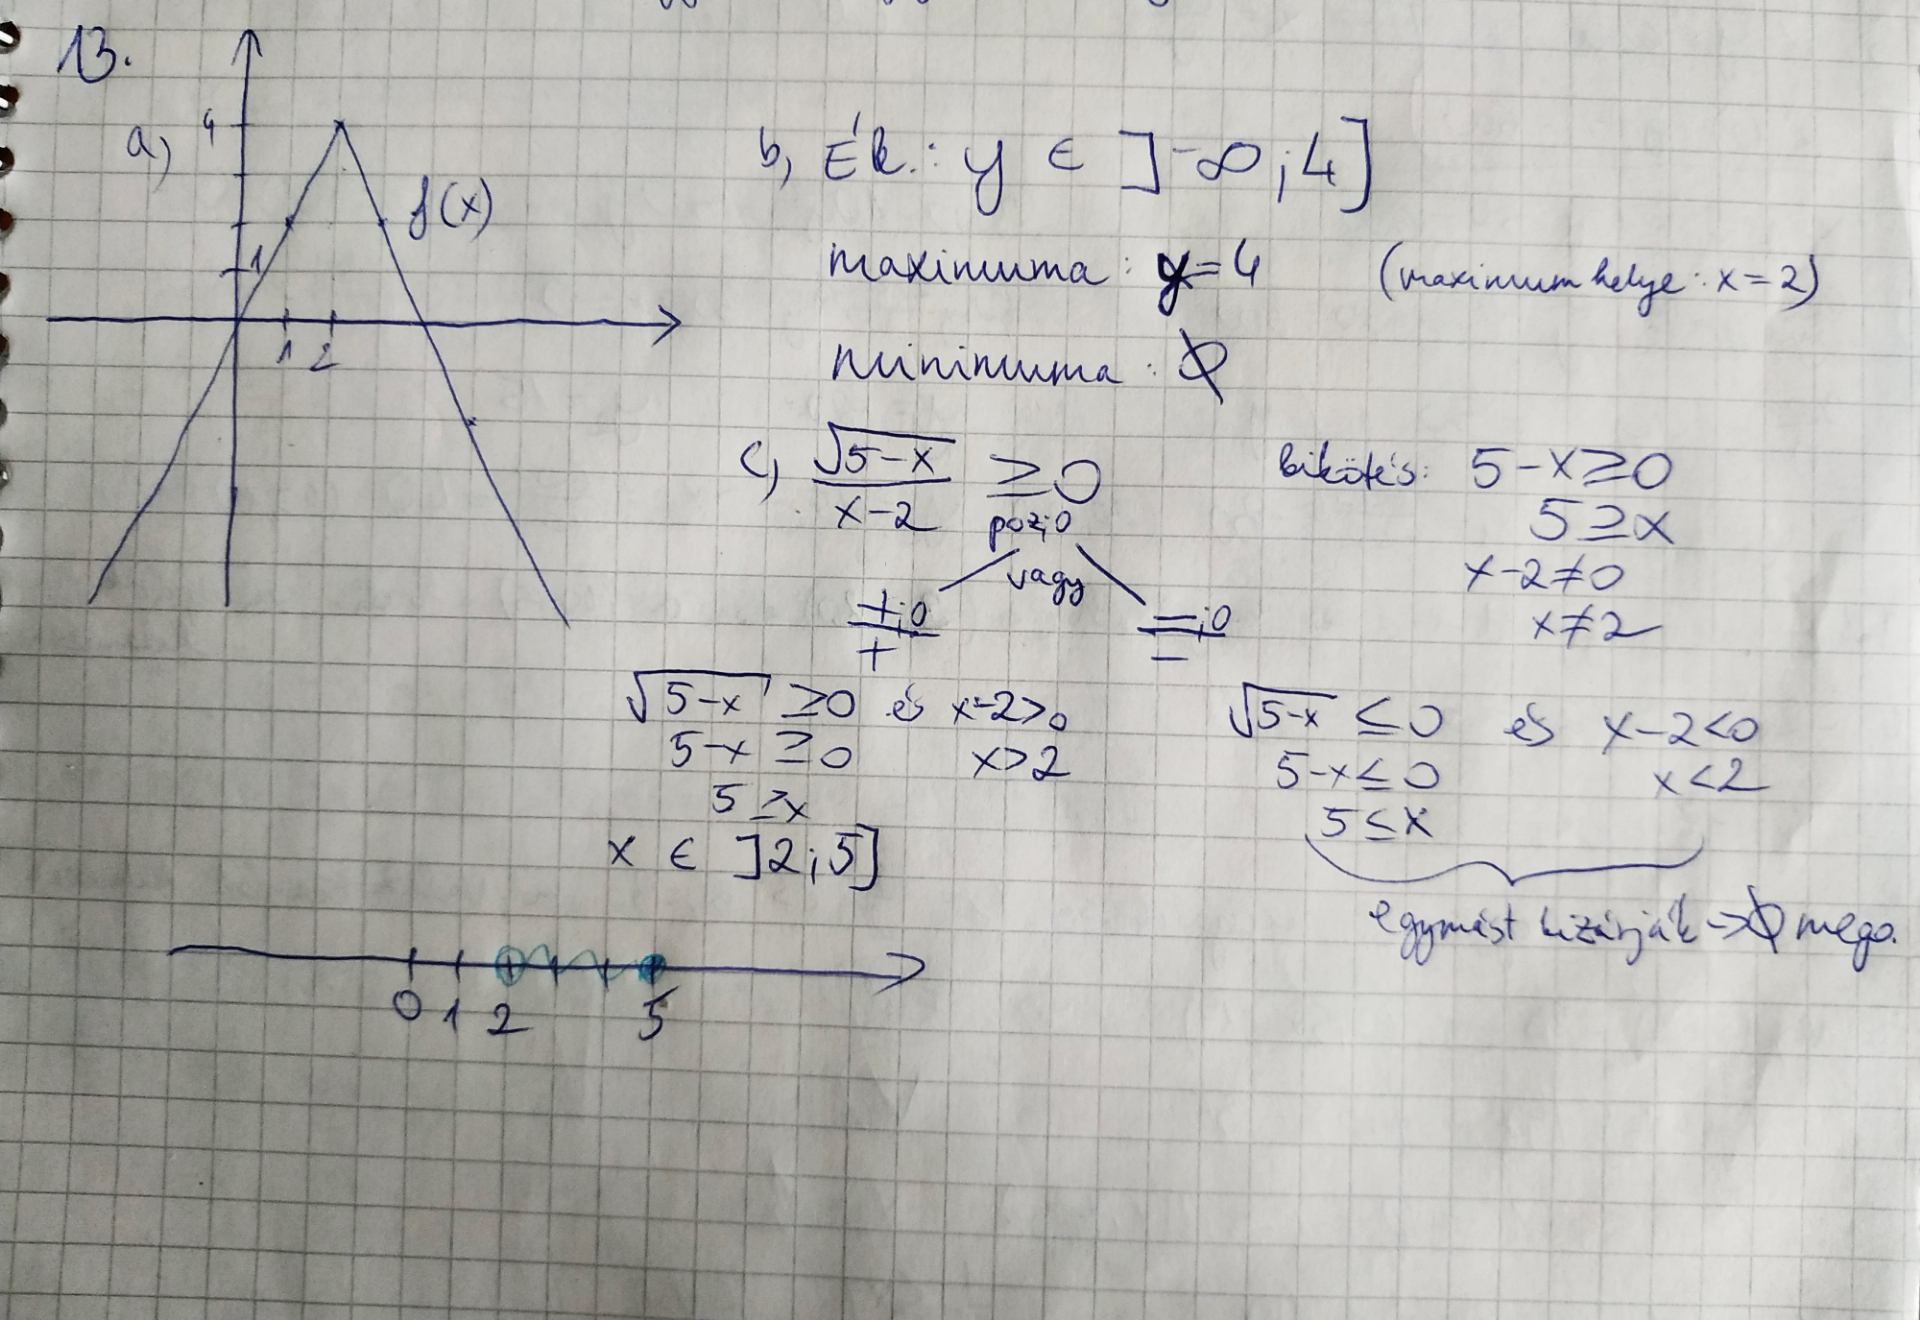 13.
a)
4
f(x)
1
1 2
b) Ék.: y ∈ ]-∞;4]
maximuma: y=4 (maximum helye: x=2)
minimuma: ∅
c) √(5-x)/(x-2) ≥ 0
poz;0
vagy
+;0/+
-;0/-
kikötés: 5-x≥0
5≥x
x-2≠0
x≠2
√(5-x) ≥0 és x-2>0
5-x ≥0 x>2
5≥x
x ∈ ]2;5]
√(5-x) ≤ 0 és x-2<0
5-x≤0 x<2
5≤x
egymást kizárják → ∅ mego.
0 1 2 5